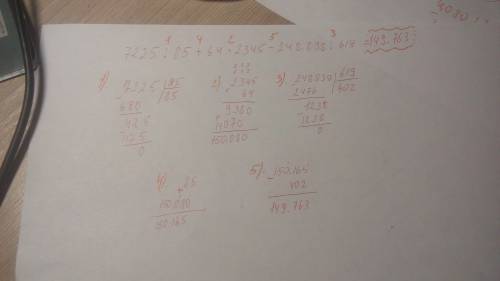 4080
1 4 2 5 3
7225 : 85 + 64 · 2345 - 248.838 : 619 = 149.763
1) 7225 |85
680 85
425
425
0
2) 2345
64
9380
14070
150.080
3) 248838 |619
2476 402
1238
1238
0
4) 85
+
150.080
150.165
5) 150.165
- 402
149.763